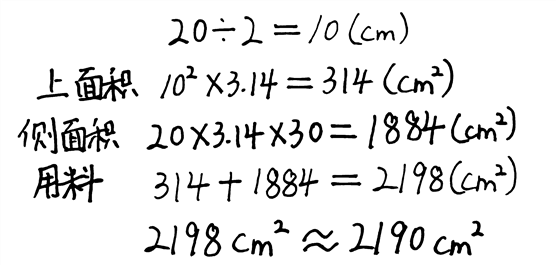 20÷2=10(cm)
上面积 10²×3.14=314(cm²)
侧面积 20×3.14×30=1884(cm²)
用料 314+1884=2198(cm²)
2198cm²≈2190cm²